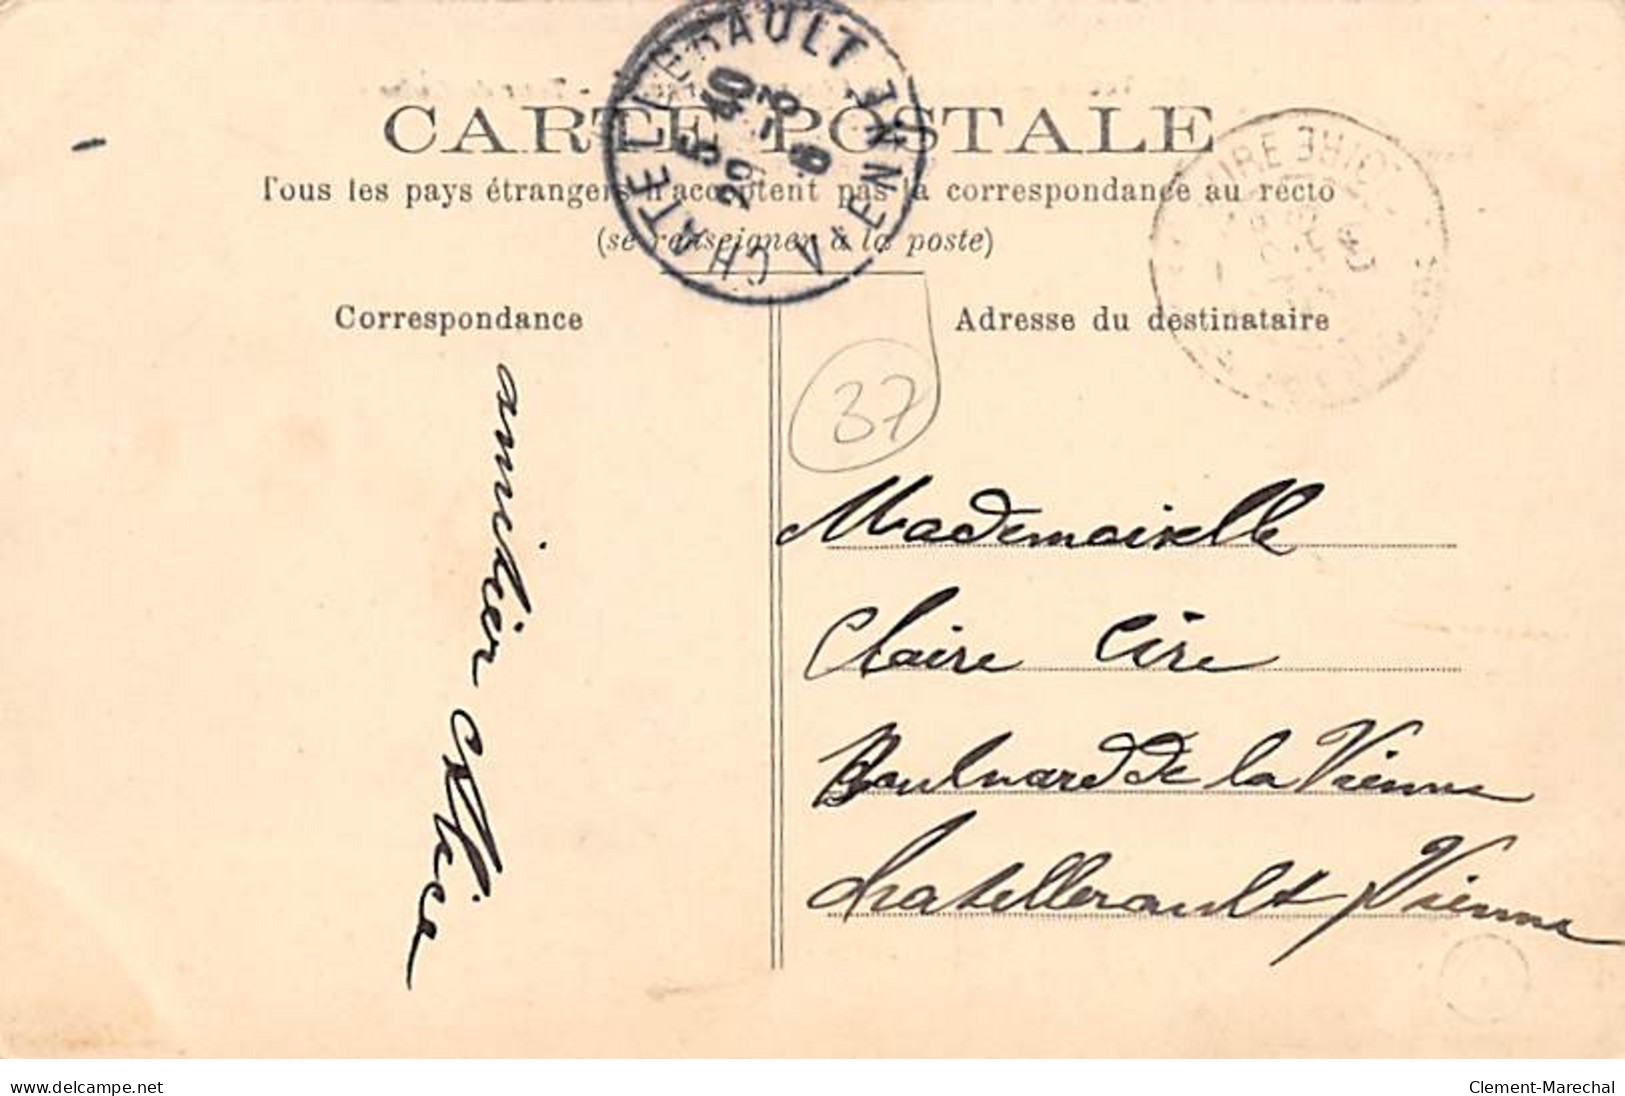 CARTE POSTALE
Tous les pays étrangers n'acceptent pas la correspondance au recto
(se renseigner à la poste)
CHATELLERAULT
VIENNE
5 E 40
29 - 9
Correspondance
Adresse du destinataire
37
Mademoiselle
Claire Cire
Boulevard de la Vienne
Chatellerault Vienne
amitiés Alice
www.delcampe.net
Clement-Marechal